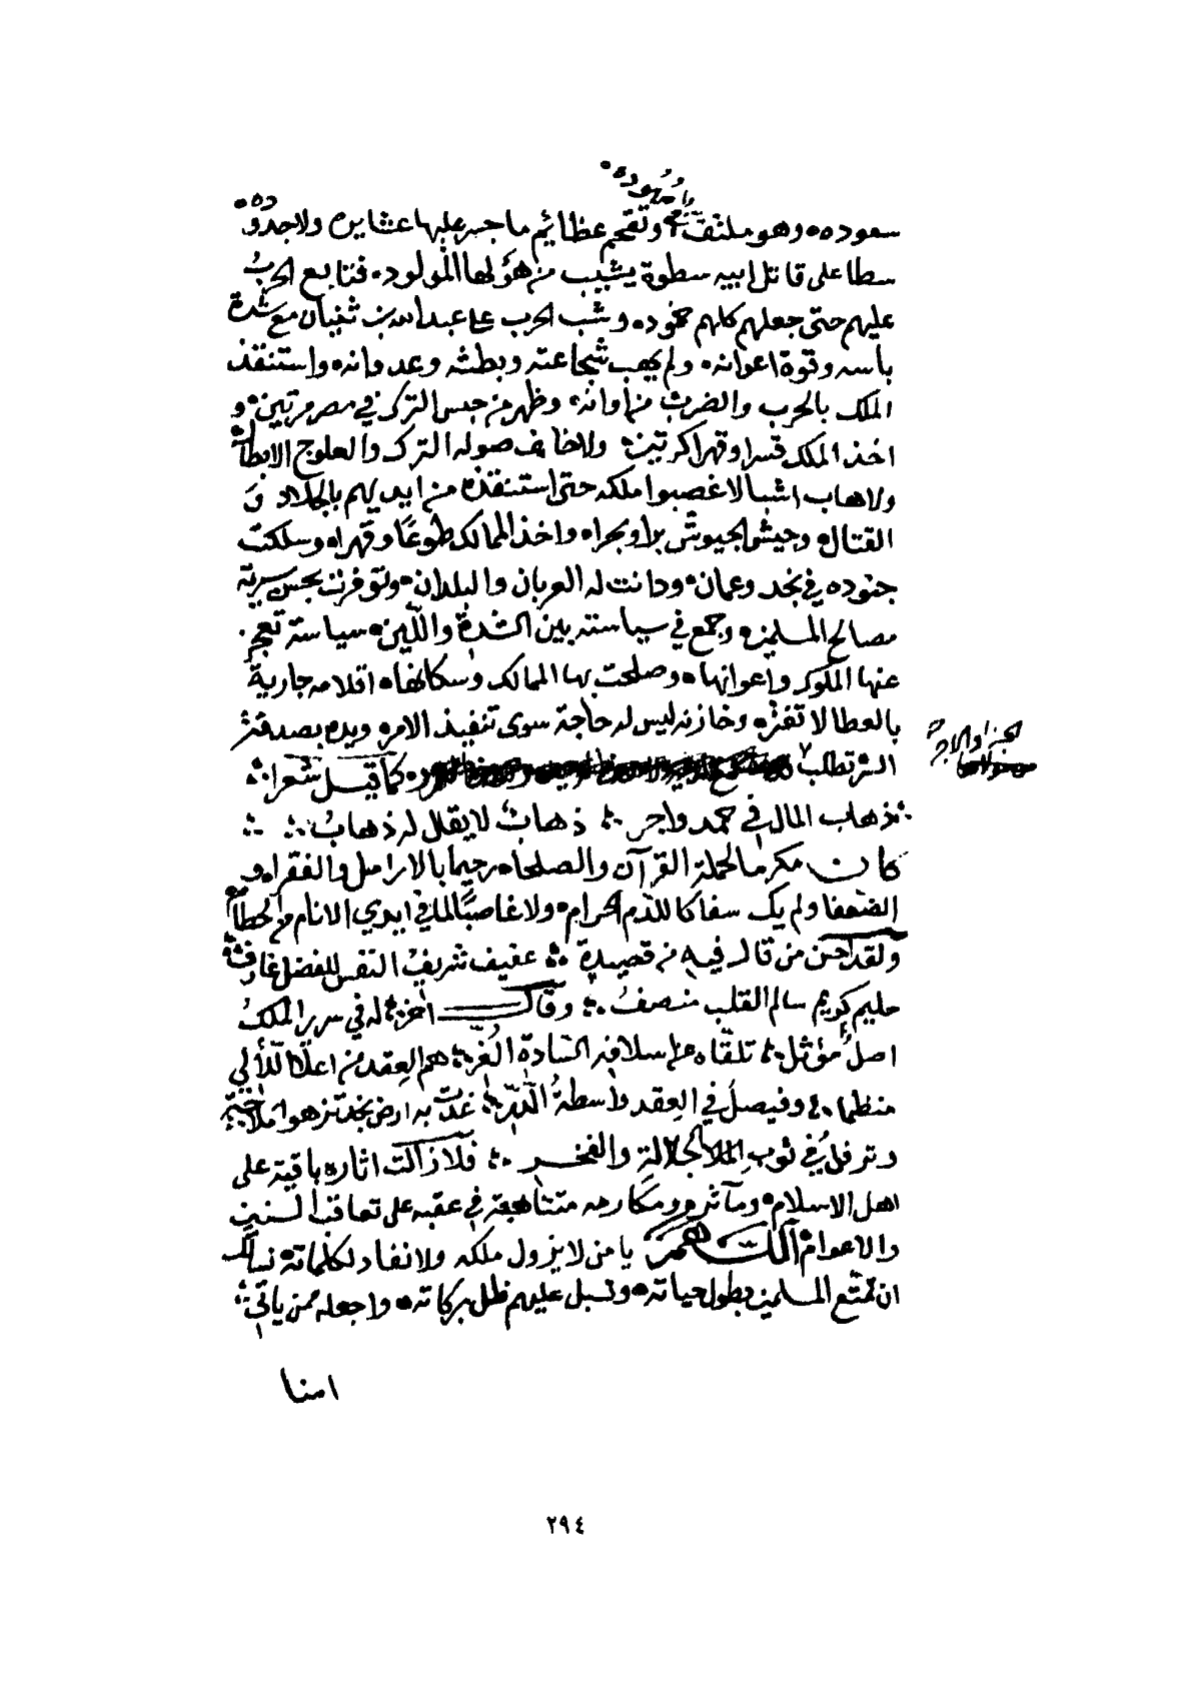 واسوده
سعوده وهو ملتف وتقحم عظائم ما جسر عليها عشايره ولا جدوده
سطا على قاتل ابيه سطوة يشيب من هولها المولود فتابع الحرب
عليهم حتى جعلهم كلهم خموده وشب الحرب على عبدالله بن ثنيان مع شدة
باسه وقوة اعوانه ولم يهب شجاعته وبطشه وعدوانه واستنقذ
الملك بالحرب والضرب من اوانه وظهر من حبس الترك في مصر مرتين و
اخذ الملك قسرا وقهرا كرتين ولا خاف صولة الترك والعلوج الابطال
ولا هاب اشبالا غصبوا ملكه حتى استنقذه من ايديهم بالجلاد و
القتال وجيش الجيوش برا وبحرا واخذ الممالك طوعًا وقهرا وسلكت
جنوده في نجد وعمان ودانت له العربان والبلدان وتوفرت بحسن سيرته
مصالح المسلمين وجمع في سياسته بين الشدة واللين سياسة تعجز
عنها الملوك واعوانها وصلحت بها الممالك وسكانها اقلامه جارية
بالعطا لا تفتر وخازنه ليس له حاجة سوى تنفيذ الامر ويده بصدقة
السر تطلب الجزا والاجر كما قيل شعرا
ذهاب المال في حمد واجر ذهاب لا يقال له ذهاب
كان مكرما لحملة القرآن والصلحا رحيما بالارامل والفقرا و
الضعفا ولم يك سفاكا للدم الحرام ولا غاصبًا لما في ايدي الانام من الحطام
ولقد احسن من قال فيه من قصيدة عفيف شريف النفس للفضل عارف
حليم كريم سالم القلب منصف وقال اخر له في سرير الملك
اصل مؤثل تلقاه من اسلافه السادة الغر هم العقد من اعلا اللآلي
منظما وفيصل في العقد واسطة الدر غدت به ارض نجد تزهوا ملاحة
وترفل في ثوب الجلالة والفخر فلا زالت اثاره باقية على
اهل الاسلام ومآثره ومكارمه متتابعة في عقبه على تعاقب السنين
والاعوام اللهم يا من لا يزول ملكه ولا نفاد لكلماته نسالك
ان تمتع المسلمين بطول حياته وتسبل عليهم ظل بركاته واجعله ممن ياتي
امنا
٢٩٤